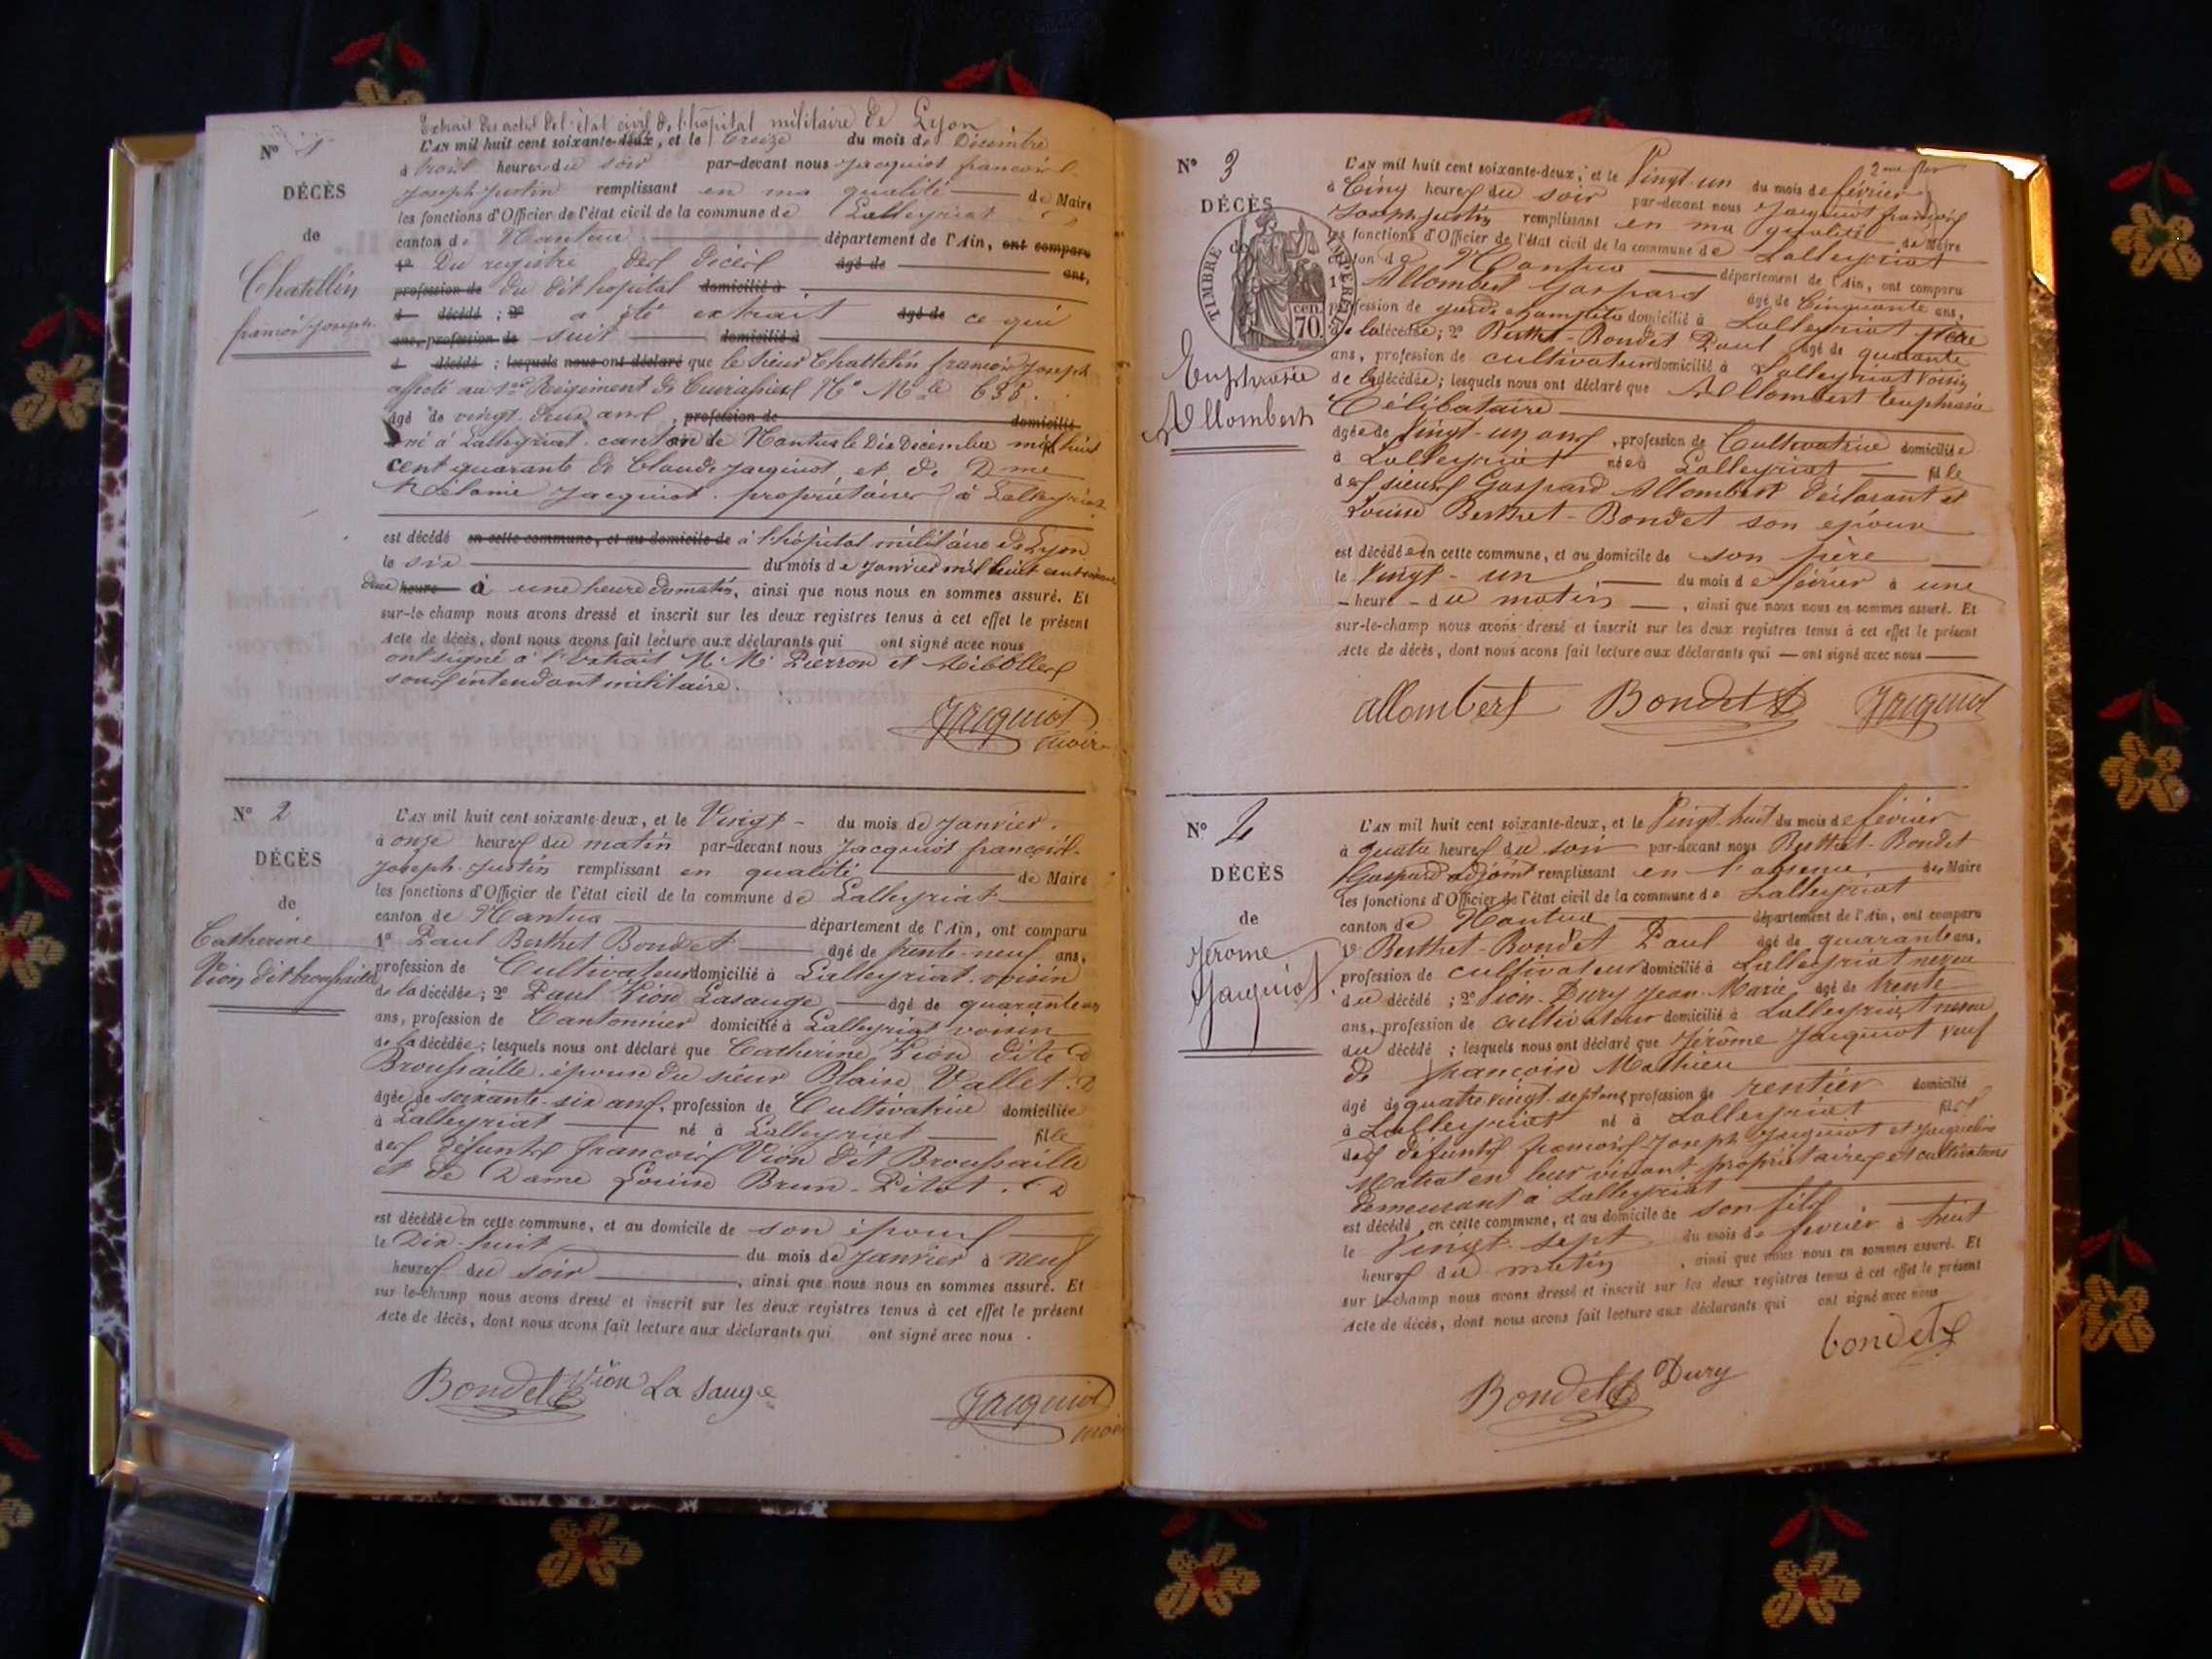 Extrait des actes de l'état civil de l'hopital militaire de Lyon
N° 1
L'AN mil huit cent soixante-deux, et le treize du mois de Décembre
à trois heures du soir par-devant nous Jacquiot françois
DÉCÈS
Joseph Justin remplissant en ma qualité de Maire
les fonctions d'Officier de l'état civil de la commune de Lalleyriat
de
canton de Nantua département de l'Ain, ont comparu
1° Du registre des décès âgé de ans,
Chatellin
françois Joseph
profession de du dit hopital domicilié à
d décédé ; 2° a été extrait âgé de ce qui
ans, profession de suit domicilié à
d décédé ; lesquels nous ont déclaré que le sieur Chattelin françois Joseph
affecté au 1er Régiment de Cuirassiers N° Mle 635.
âgé de vingt deux ans, profession de domicilié
né à Lalleyriat canton de Nantua le Dix Décembre mil huit
cent quarante de Claude Jacquiot et de Dme
Mélanie Jacquiot propriétaires à Lalleyriat
est décédé en cette commune, et au domicile de à l'hôpital militaire de Lyon
le six du mois de Janvier mil huit cent soixante
deux heure à une heure du matin, ainsi que nous nous en sommes assuré. Et
sur-le-champ nous avons dressé et inscrit sur les deux registres tenus à cet effet le présent
Acte de décès, dont nous avons fait lecture aux déclarants qui ont signé avec nous
ont signé à l'extrait M. M. Pierron et
sous intendant militaire.
Jacquiot
maire
N° 2
L'AN mil huit cent soixante-deux, et le Vingt du mois de Janvier.
à onze heures du matin par-devant nous Jacquiot françois
DÉCÈS
Joseph Justin remplissant en qualité de Maire
les fonctions d'Officier de l'état civil de la commune de Lalleyriat
de
canton de Nantua département de l'Ain, ont comparu
Catherine
Vion dit broussaille
1° Paul Berthet Bondet âgé de trente-neuf ans,
profession de Cultivateur domicilié à Lalleyriat voisin
de la décédée ; 2° Paul Vion Lasauge âgé de quarante un
ans, profession de Cantonnier domicilié à Lalleyriat voisin
de la décédée ; lesquels nous ont déclaré que Catherine Vion dite
Broussaille épouse du sieur Blaise Vallet
âgée de soixante-six ans, profession de Cultivatrice domiciliée
à Lalleyriat né à Lalleyriat fille
des défunts françois Vion dit Broussaille
et de Dame Louise Brun-Pitot.
est décédée en cette commune, et au domicile de son époux
le Dix-huit du mois de Janvier à neuf
heures du soir, ainsi que nous nous en sommes assuré. Et
sur-le-champ nous avons dressé et inscrit sur les deux registres tenus à cet effet le présent
Acte de décès, dont nous avons fait lecture aux déclarants qui ont signé avec nous.
Bondet Vion La Sauge
Jacquiot
maire
2me
N° 3
L'AN mil huit cent soixante-deux, et le Vingt-un du mois de février
à Cinq heures du soir par-devant nous Jacquiot françois
DÉCÈS
Joseph Justin remplissant en ma qualité de Maire
TIMBRE IMPÉRIAL
70 cen.
les fonctions d'Officier de l'état civil de la commune de Lalleyriat
canton de Nantua département de l'Ain, ont comparu
1° Allombert Gaspard âgé de Cinquante ans,
profession de garde champêtre domicilié à Lalleyriat père
de la décédée ; 2° Berthet-Bondet Paul âgé de quarante
ans, profession de cultivateur domicilié à Lalleyriat Voisin
Euphrasie
Allombert
de la décédée ; lesquels nous ont déclaré que Allombert Euphrasie
Célibataire
âgée de Vingt-un ans, profession de Cultivatrice domiciliée
à Lalleyriat née à Lalleyriat fille
des sieurs Gaspard Allombert déclarant et
Louise Berthet-Bondet son épouse
est décédée en cette commune, et au domicile de son père
le Vingt-un du mois de février à une
heure du matin, ainsi que nous nous en sommes assuré. Et
sur-le-champ nous avons dressé et inscrit sur les deux registres tenus à cet effet le présent
Acte de décès, dont nous avons fait lecture aux déclarants qui ont signé avec nous
allombert Bondet Jacquiot
N° 4
L'AN mil huit cent soixante-deux, et le Vingt-huit du mois de février
à quatre heures du soir par-devant nous Berthet-Bondet
DÉCÈS
Gaspard adjoint remplissant en l'absence du Maire
les fonctions d'Officier de l'état civil de la commune de Lalleyriat
de
canton de Nantua département de l'Ain, ont comparu
Jérome
Jacquiot.
1° Berthet-Bondet Paul âgé de quarante ans,
profession de cultivateur domicilié à Lalleyriat neveu
du décédé ; 2° Vion-Dury Jean-Marie âgé de trente
ans, profession de cultivateur domicilié à Lalleyriat neveu
du décédé ; lesquels nous ont déclaré que Jérôme Jacquiot veuf
de françoise Mathieu
âgé de quatre vingt-sept ans profession de rentier domicilié
à Lalleyriat né à Lalleyriat fils
des défunts françois Joseph Jacquiot et Jacqueline
Matrat en leur vivant propriétaires et cultivateurs
demeurant à Lalleyriat
est décédé en cette commune, et au domicile de son fils
le Vingt-sept du mois de février à huit
heures du matin, ainsi que nous nous en sommes assuré. Et
sur-le-champ nous avons dressé et inscrit sur les deux registres tenus à cet effet le présent
Acte de décès, dont nous avons fait lecture aux déclarants qui ont signé avec nous
bondet
Bondet Dury